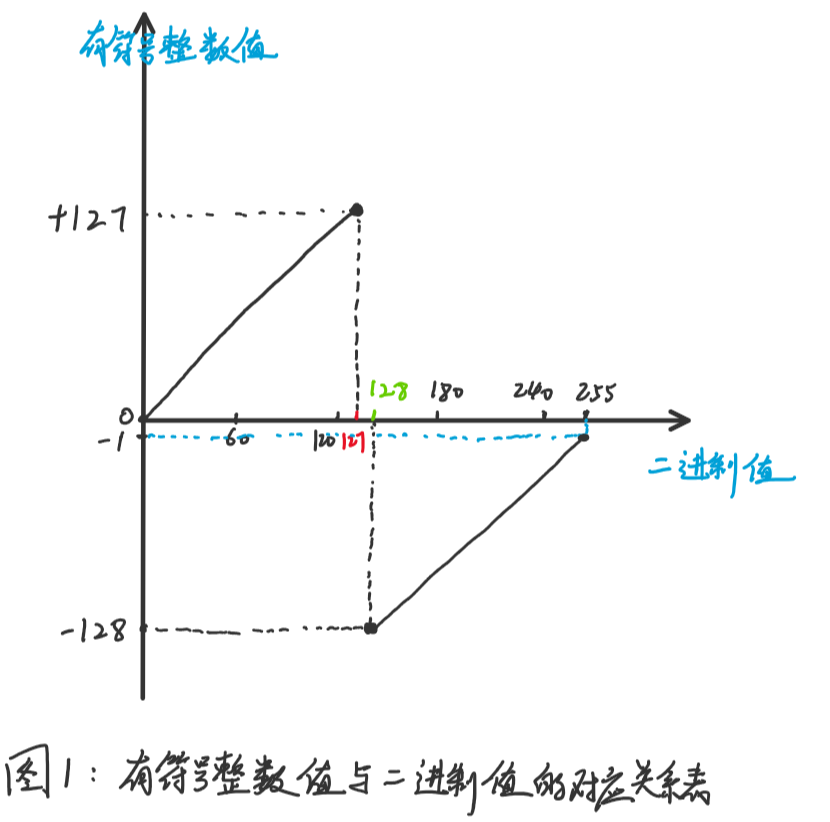 有符号整数值
+127
128 180 240 255
0
-1 60 120 127
二进制值
-128
图1：有符号整数值与二进制值的对应关系表